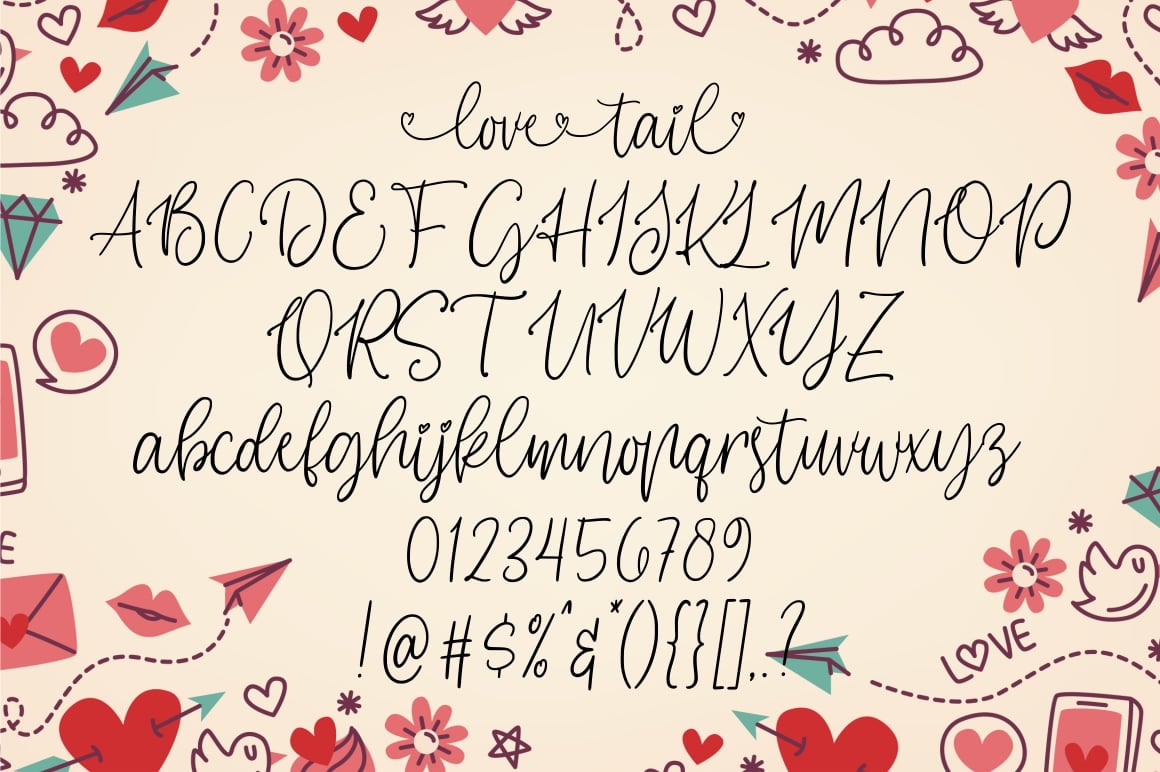 love tail
ABCDEFGHIJKLMNOP
QRSTUVWXYZ
abcdefghijklmnopqrstuvwxyz
0123456789
!@#$%^&*(){}[],.?
LOVE